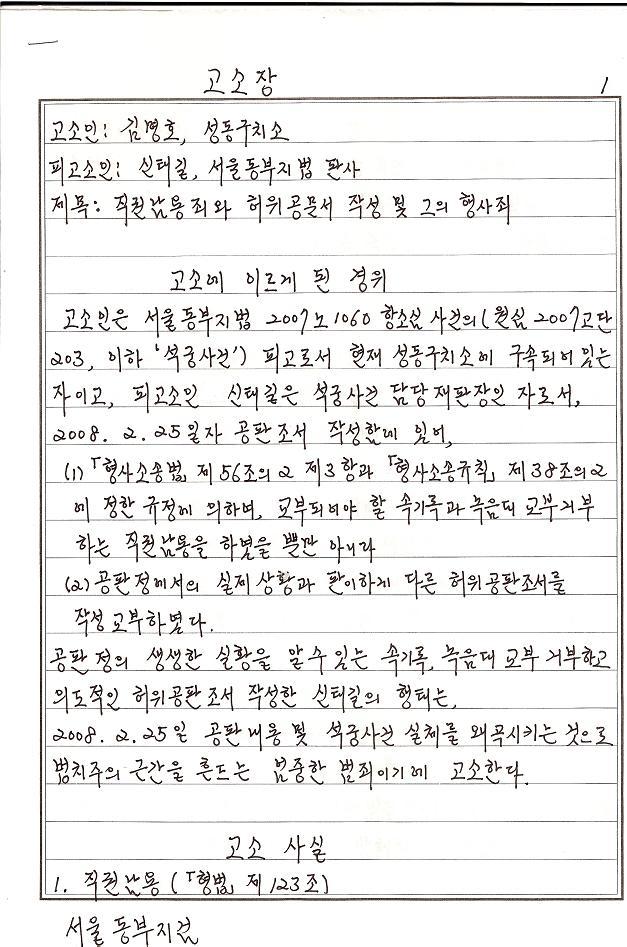 고소장
1
고소인: 김명호, 성동구치소
피고소인: 신태길, 서울동부지법 판사
제목: 직권남용죄와 허위공문서 작성 및 그의 행사죄
고소에 이르게 된 경위
고소인은 서울동부지법 2007노1060 항소심 사건의(원심 2007고단
203, 이하 '석궁사건') 피고로서 현재 성동구치소에 구속되어 있는
자이고, 피고소인 신태길은 석궁사건 담당재판장인 자로서,
2008. 2. 25일자 공판조서 작성함에 있어,
(1)「형사소송법」제56조의2 제3항과 「형사소송규칙」 제38조의2
에 정한 규정에 의하여, 교부되어야 할 속기록과 녹음테 교부거부
하는 직권남용을 하였을 뿐만 아니라
(2) 공판정에서의 실제 상황과 판이하게 다른 허위공판조서를
작성 교부하였다.
공판정의 생생한 실황을 알 수 있는 속기록, 녹음테 교부 거부하고
의도적인 허위공판조서 작성한 신태길의 행태는,
2008. 2. 25일 공판내용 및 석궁사건 실체를 왜곡시키는 것으로
법치주의 근간을 흔드는 엄중한 범죄이기에 고소한다.
고소 사실
1. 직권남용 (「형법」 제123조)
서울동부지검